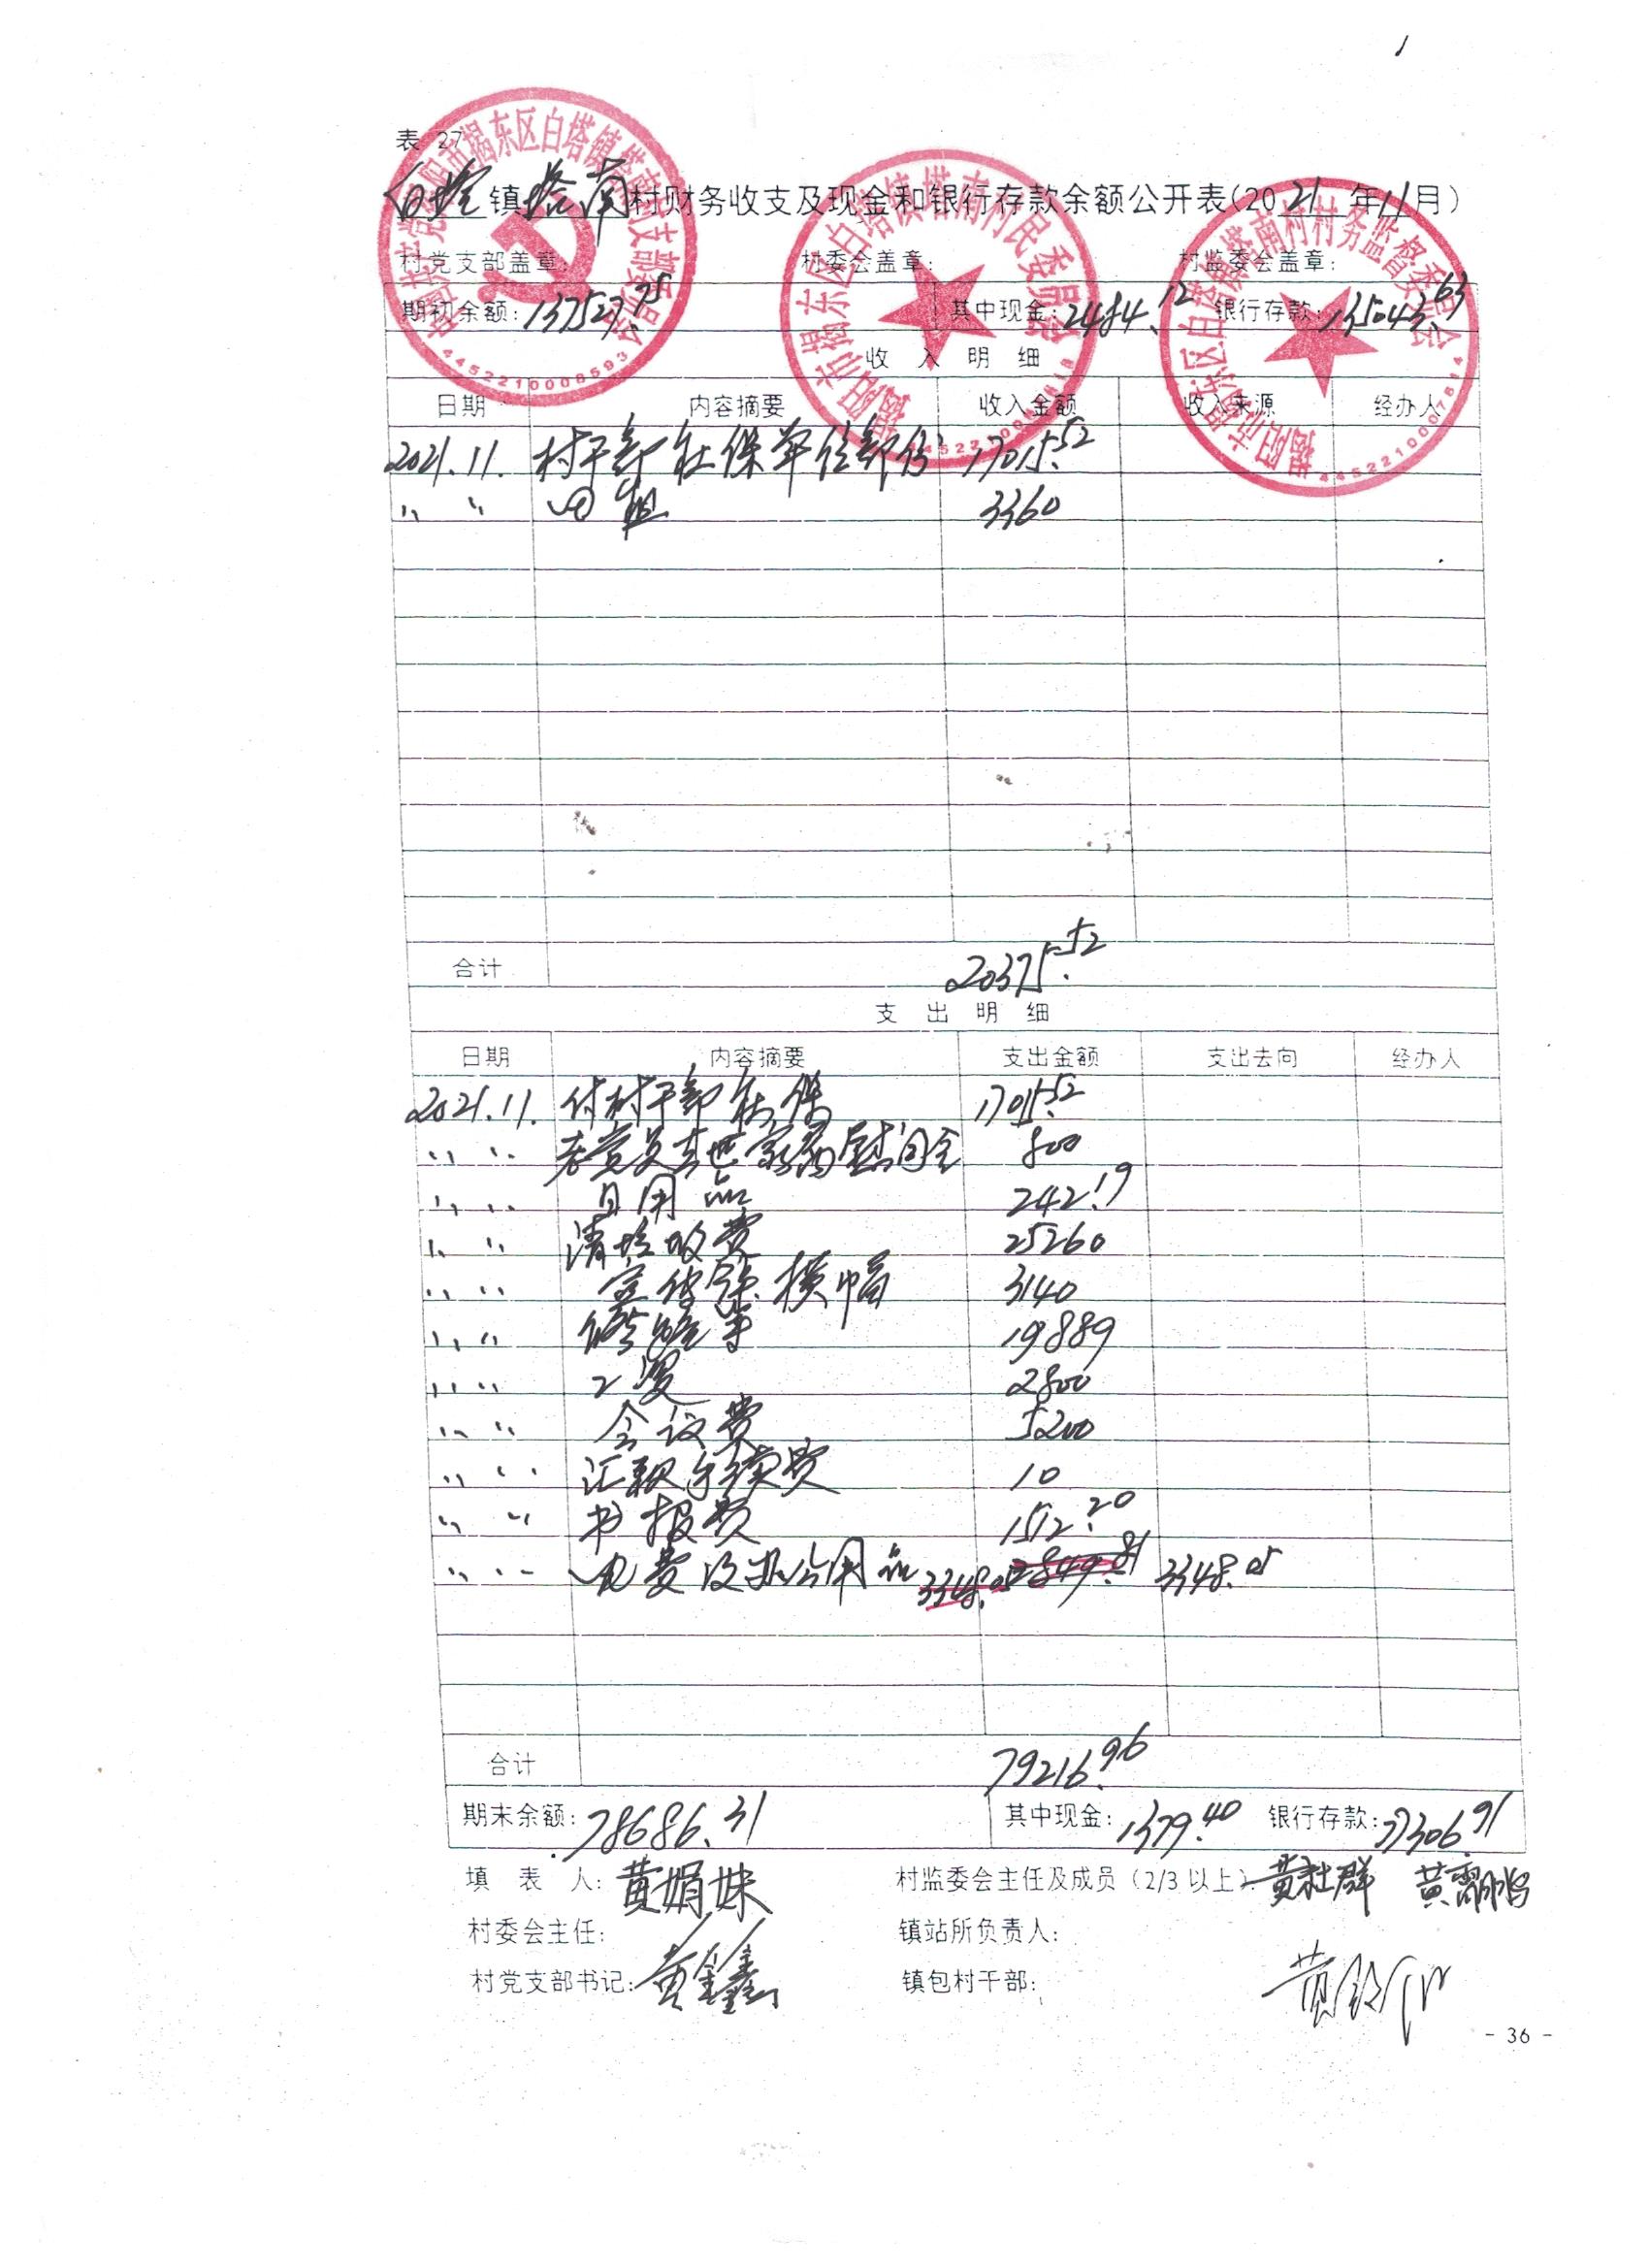 表 27
白塔镇塔南村财务收支及现金和银行存款余额公开表(2021年11月)
村党支部盖章: 村委会盖章: 村监委会盖章:
期初余额:137527.75 其中现金:2484.12 银行存款:135043.63
收入明细
日期 内容摘要 收入金额 收入来源 经办人
2021.11. 村干部社保单位部份 17015.52
〃 〃 田租 3360
合计 20375.52
支出明细
日期 内容摘要 支出金额 支出去向 经办人
2021.11. 付村干部社保 17015.52
〃 〃 老党员去世家属慰问金 800
〃 〃 日用品 242.19
〃 〃 清垃圾费 25260
〃 〃 宣传 横幅 3140
〃 〃 19889
〃 〃 2800
〃 〃 会议费 5200
〃 〃 汇款手续费 10
〃 〃 书报费 1512.20
〃 〃 电费及办公用品 3348.05 2849.81 3348.05
合计 79216.96
期末余额:78686.31 其中现金:1379.40 银行存款:77306.91
填表人:黄娟妹 村监委会主任及成员(2/3以上):黄社群 黄
村委会主任: 镇站所负责人:
村党支部书记:黄鑫 镇包村干部:
- 36 -